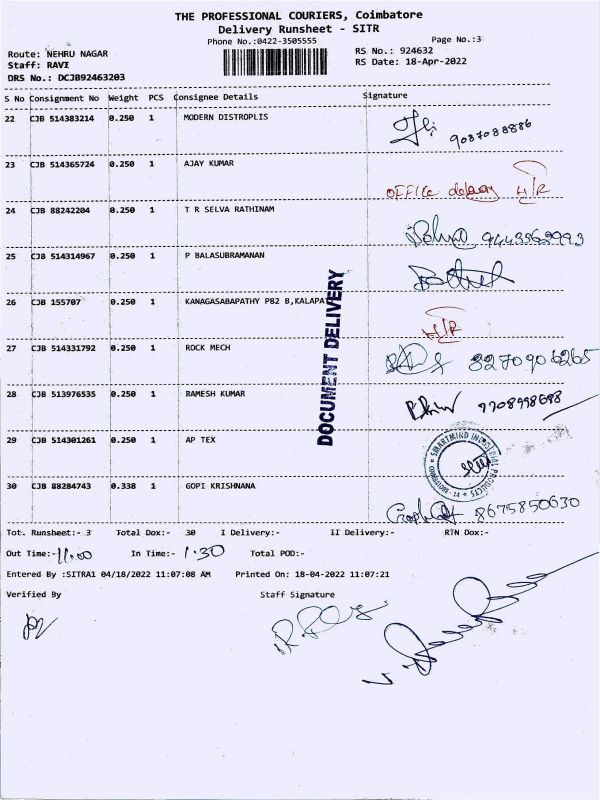 THE PROFESSIONAL COURIERS, Coimbatore
Delivery Runsheet - SITR
Phone No.:0422-3505555
Page No.:3
Route: NEHRU NAGAR
RS No.: 924632
Staff: RAVI
RS Date: 18-Apr-2022
DRS No.: DCJB92463203
S No Consignment No Weight PCS Consignee Details Signature
22 CJB 514383214 0.250 1 MODERN DISTROPLIS
23 CJB 514365724 0.250 1 AJAY KUMAR
OFFICE delivery H/R
24 CJB 88242204 0.250 1 T R SELVA RATHINAM
25 CJB 514314967 0.250 1 P BALASUBRAMANAN
26 CJB 155707 0.250 1 KANAGASABAPATHY P82 B,KALAPAT
H/R
27 CJB 514331792 0.250 1 ROCK MECH 8270906265
28 CJB 513976535 0.250 1 RAMESH KUMAR 9708998698
29 CJB 514301261 0.250 1 AP TEX
SMARTMIND INDUSTRIAL PRODUCTS
COIMBATORE - 14
30 CJB 88284743 0.338 1 GOPI KRISHNANA 8675850630
DOCUMENT DELIVERY
Tot. Runsheet:- 3 Total Dox:- 30 I Delivery:- II Delivery:- RTN Dox:-
Out Time:-11.00 In Time:- 1.30 Total POD:-
Entered By :SITRA1 04/18/2022 11:07:08 AM Printed On: 18-04-2022 11:07:21
Verified By Staff Signature